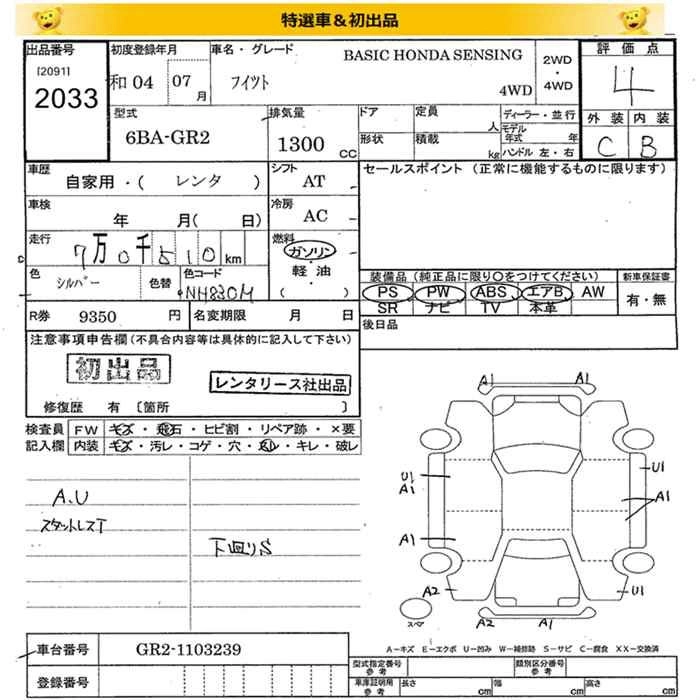 特選車＆初出品
出品番号 初度登録年月 車名・グレード BASIC HONDA SENSING 2WD・4WD 評価点
[2091]
2033 和04 07月 フィット 4WD 4
型式 排気量 ドア 定員 人 ディーラー・並行 外装 内装
6BA-GR2 1300 CC 形状 積載 kg モデル年式 年 ハンドル 左・右 C B
車歴 シフト セールスポイント (正常に機能するものに限ります)
自家用・( レンタ ) AT
車検 冷房
年 月( 日) AC
走行 7万0千510km 燃料 ガソリン・軽油・( )
色 シルバー 色替 色コード NH830M
装備品 (純正品に限り○をつけてください) 新車保証書
PS PW ABS エアB AW 有・無
SR ナビ TV 本革
R券 9350 円 名変期限 月 日 後日品
注意事項申告欄 (不具合内容等は具体的に記入して下さい)
初出品
レンタリース社出品
修復歴 有 [箇所 ]
検査員 FW キズ・飛石・ヒビ割・リペア跡・×要
記入欄 内装 キズ・汚レ・コゲ・穴・スレ・キレ・破レ
A.U
スタットレスT
下廻りS
A1 A1
U1 U1
A1 A1
A1
A2 U1
スペア A2 A1
A－キズ E－エクボ U－凹み W－補修跡 S－サビ C－腐食 XX－交換済
車台番号 GR2-1103239 型式指定番号 参考 類別区分番号 参考
登録番号 車庫証明用 参考 長さ cm 幅 cm 高さ cm